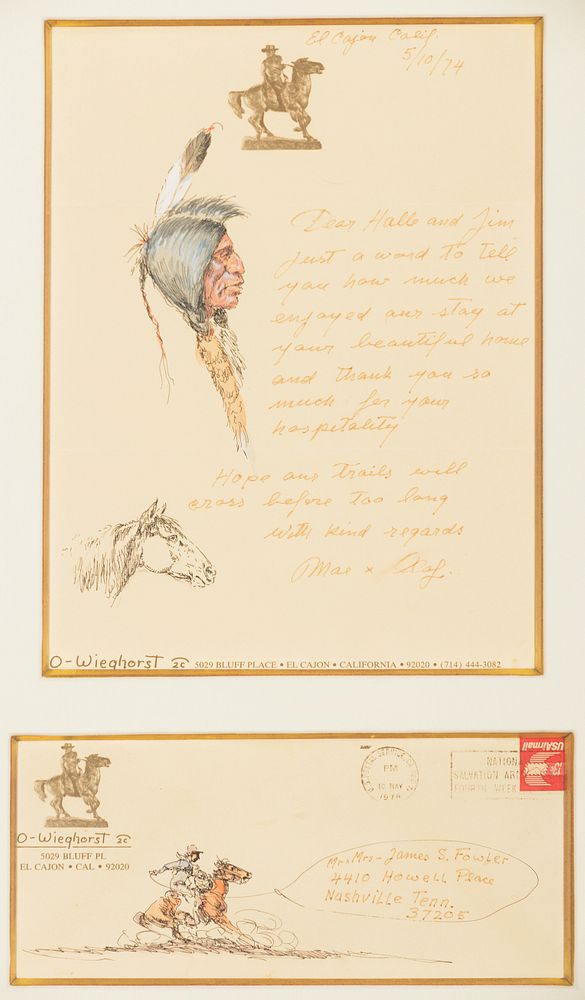 El Cajon Calif.
5/10/74
Dear Halle and Jim
just a word to tell
you how much we
enjoyed our stay at
your beautiful home
and thank you so
much for your
hospitality
Hope our trails will
cross before too long
with kind regards
Mae & Olaf.
O-Wieghorst 5029 BLUFF PLACE • EL CAJON • CALIFORNIA • 92020 • (714) 444-3082
USAirmail
PM
10 MAY
NATION
SALVATION ARM
FOURTH WEEK
O-Wieghorst
5029 BLUFF PL
EL CAJON • CAL • 92020
Mr & Mrs - James S. Fowler
4410 Howell Place
Nashville Tenn.
37205